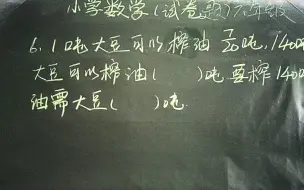 小学数学(试卷题)六年级
6.1吨大豆可以榨油7/20吨,1400
大豆可以榨油( )吨 要榨1400
油需大豆( )吨